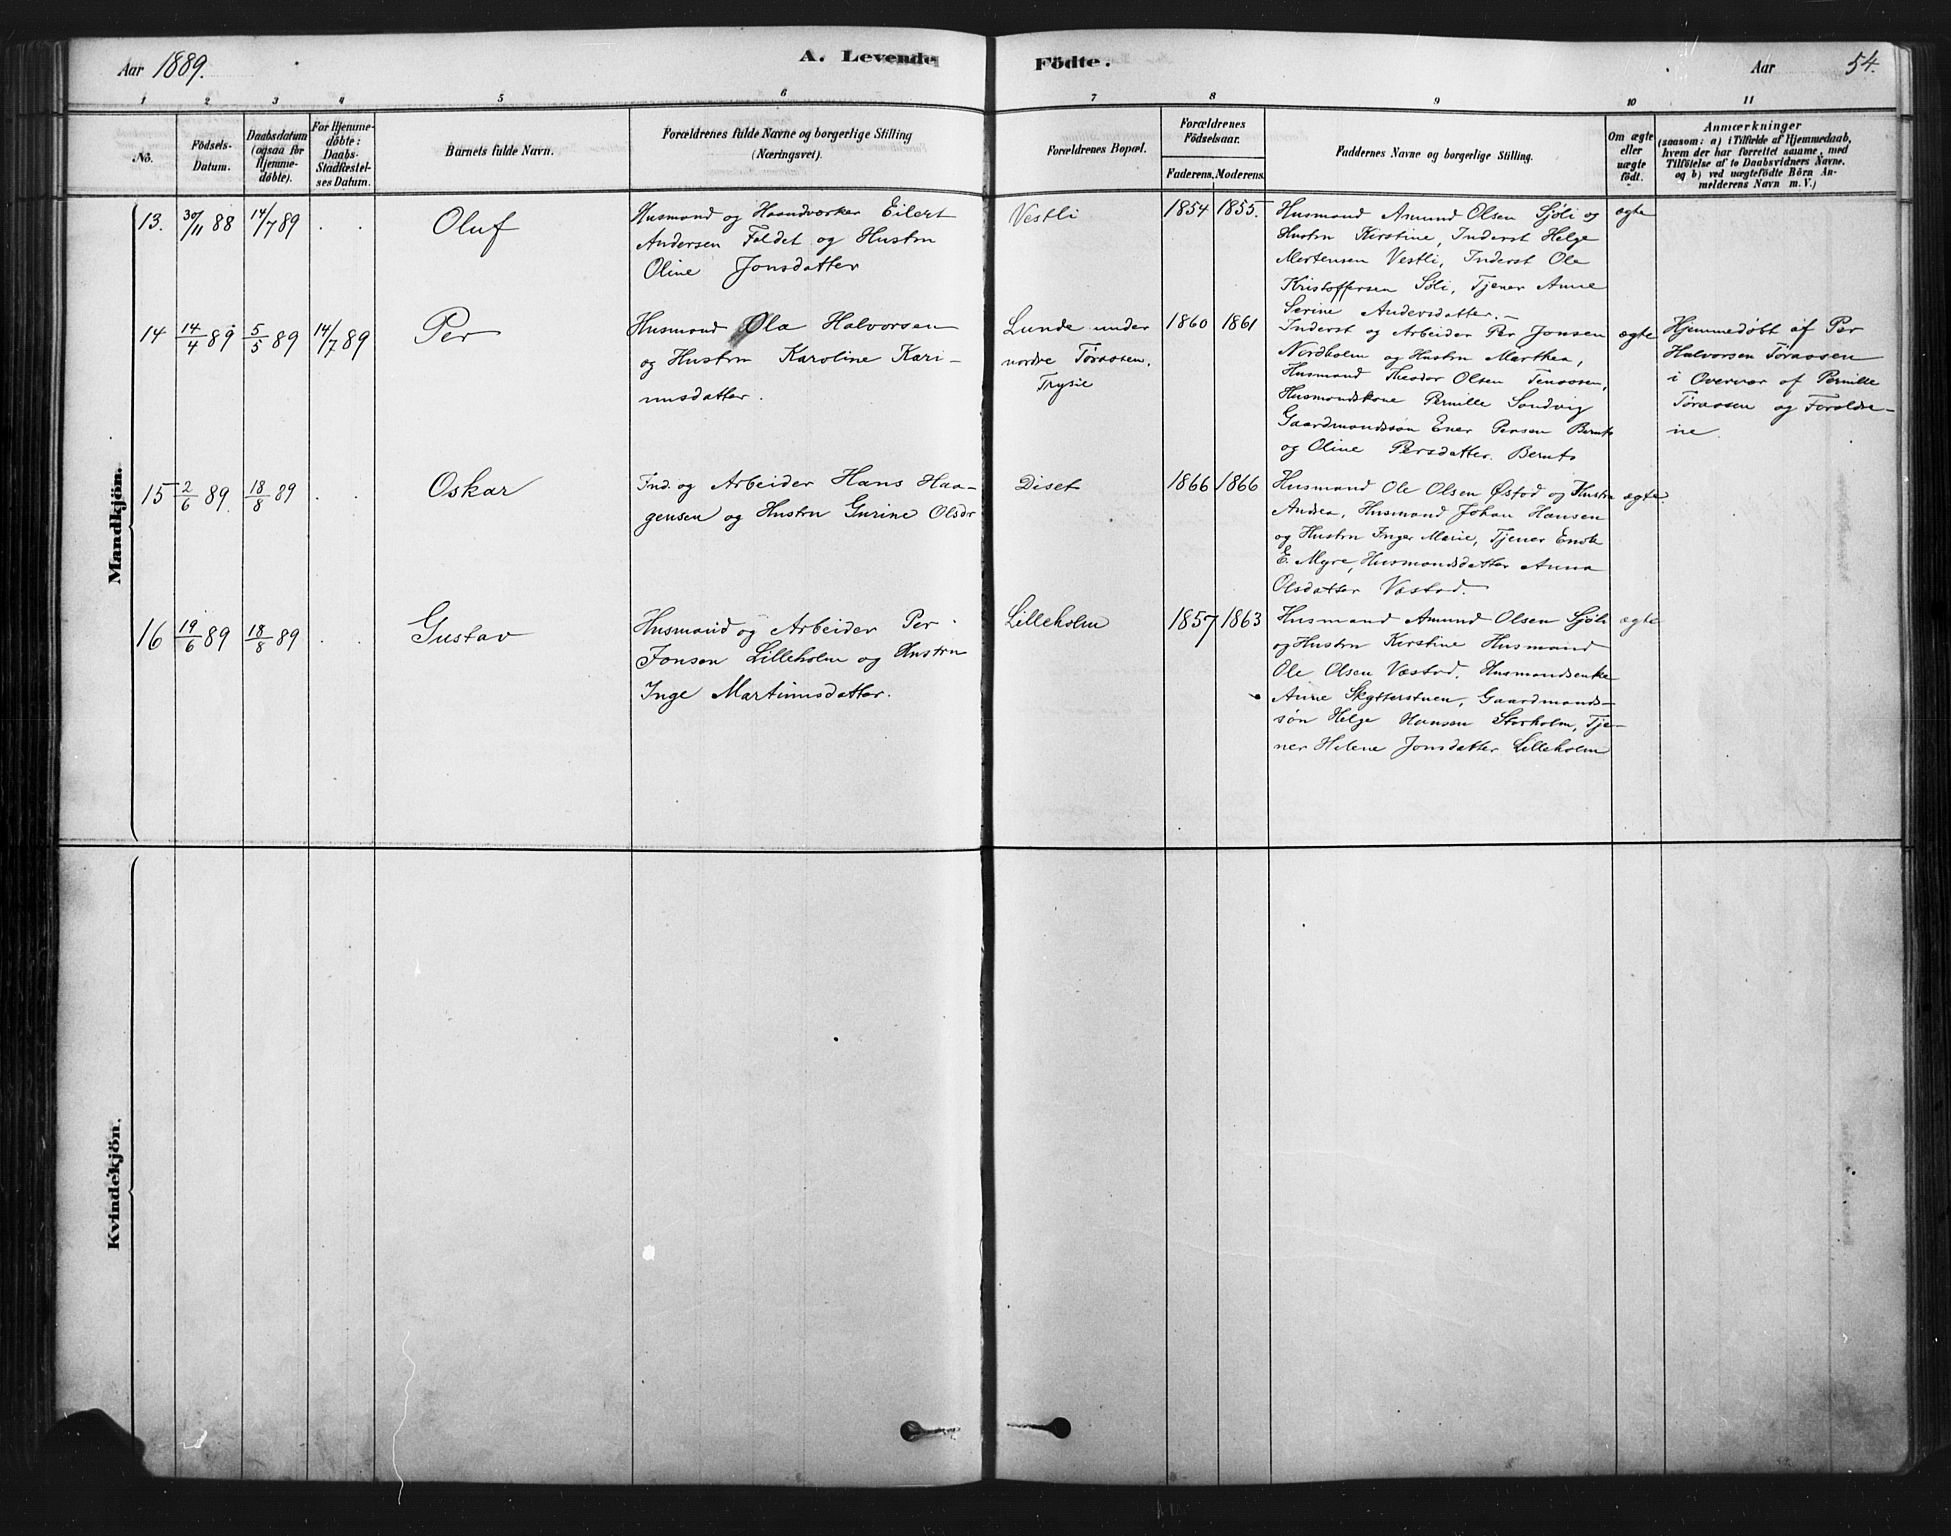 Aar 1889.
A. Levende Födte.
Aar 54.
1 2 3 4 5 6 7 8 9 10 11
No.
Födsels-
Datum.
Daabsdatum
(ogsaa for
Hjemme-
döbte).
For Hjemme-
döbte:
Daabs-
Stadfæstel-
ses Datum.
Barnets fulde Navn.
Forældrenes fulde Navne og borgerlige Stilling
(Næringsvei).
Forældrenes Bopæl.
Forældrenes
Födselsaar.
Faderens. Moderens.
Faddernes Navne og borgerlige Stilling.
Om ægte
eller
uægte
födt.
Anmærkninger
(saasom: a) i Tilfælde af Hjemmedaab,
hvem der har forrettet samme, med
Tilföielse af to Daabsvidners Navne.
og b) ved uægtefödte Börn An-
melderens Navn m. V.)
Mandkjön.
13. 30/11 88 14/7 89 . . Oluf
Husmand og Haandværker Eilert
Andersen Faldet og Hustru
Oline Jonsdatter
Vestli
1854 1855.
Husmand Amund Olsen Sjøli og
Hustru Kirstine, Inderst Helge
Mertensen Vestli, Inderst Ole
Kristoffersen Søli, Tjener Anne
Serine Andersdatter.-
ægte
14 14/4 89 5/5 89 14/7 89 Per
Husmand Ola Halvorsen
og Hustru Karoline Kari-
nusdatter.
Lunde under
nordre Töraasen,
Trysil
1860 1861
Inderst og Arbeider Per Jonsen
Nordholm og Hustru Marthea,
Husmand Theodor Olsen
Husmandskone Pernille Sandvig
Gaardmandssøn Ener Persen Bernts
og Oline Persdatter Bernts
ægte
Hjemmedøbt af Per
Halvorsen Töraasen
i Overvær af Pernille
Töraasen og Foreldre-
ne.
15 2/6 89. 18/8 89 . . Oskar
Ind. og Arbeider Hans Haa-
gensen og Hustru Gurine Olsdr
Diset
1866 1866
Husmand Ole Olsen Østad og Hustru
Andrea, Husmand Johan Hansen
og Hustru Inger Marie, Tjener
E. Myre, Husmandsdatter Anna
Olsdatter Væstad.
ægte
16 19/6 89 18/8 89 . . Gustav
Husmand og Arbeider Per
Jonsen Lilleholm og Hustru
Inge Martinusdatter.
Lilleholm
1857 1863
Husmand Amund Olsen Sjöli
og Hustru Kerstine Husmand
Ole Olsen Væstad, Husmandsenke
Anne Skytterstuen, Gaardmands-
søn Helge Hansen Storholm, Tje-
ner Helene Jonsdatter Lilleholm
ægte
Kvindekjön.